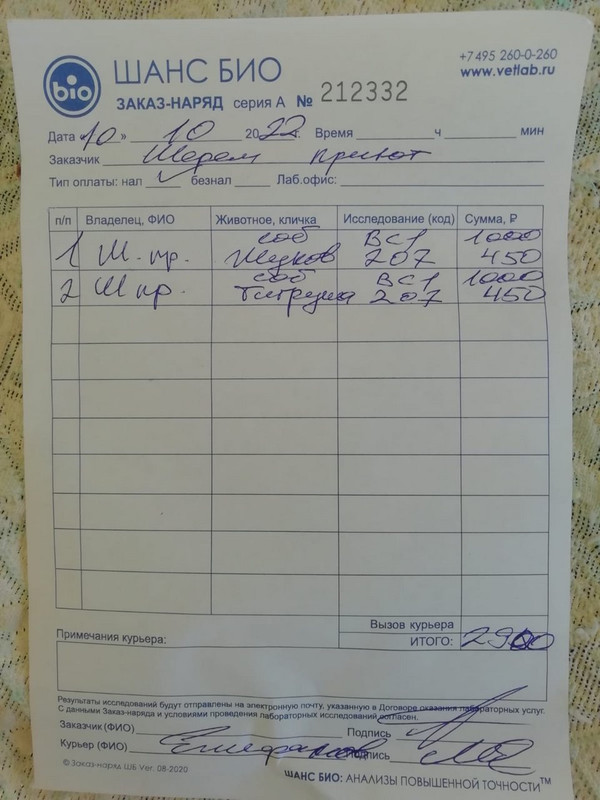 bio
ШАНС БИО
ЗАКАЗ-НАРЯД серия А № 212332
+7 495 260-0-260
www.vetlab.ru
Дата «10» 10 2022г. Время ч мин
Заказчик приют
Тип оплаты: нал ✓ безнал Лаб.офис:
п/п Владелец, ФИО Животное, кличка Исследование (код) Сумма, ₽
соб ВС1 1000
1 Ш. пр. Жуков 207 450
соб ВС1 1000
2 Ш пр. 207 450
Вызов курьера
Примечания курьера: ИТОГО: 2900
Результаты исследований будут отправлены на электронную почту, указанную в Договоре оказания лабораторных услуг.
С данными Заказ-наряда и условиями проведения лабораторных исследований согласен.
Заказчик (ФИО) Подпись
Курьер (ФИО) Епифанов Подпись
© Заказ-наряд ШБ Ver. 08-2020
ШАНС БИО: АНАЛИЗЫ ПОВЫШЕННОЙ ТОЧНОСТИ™